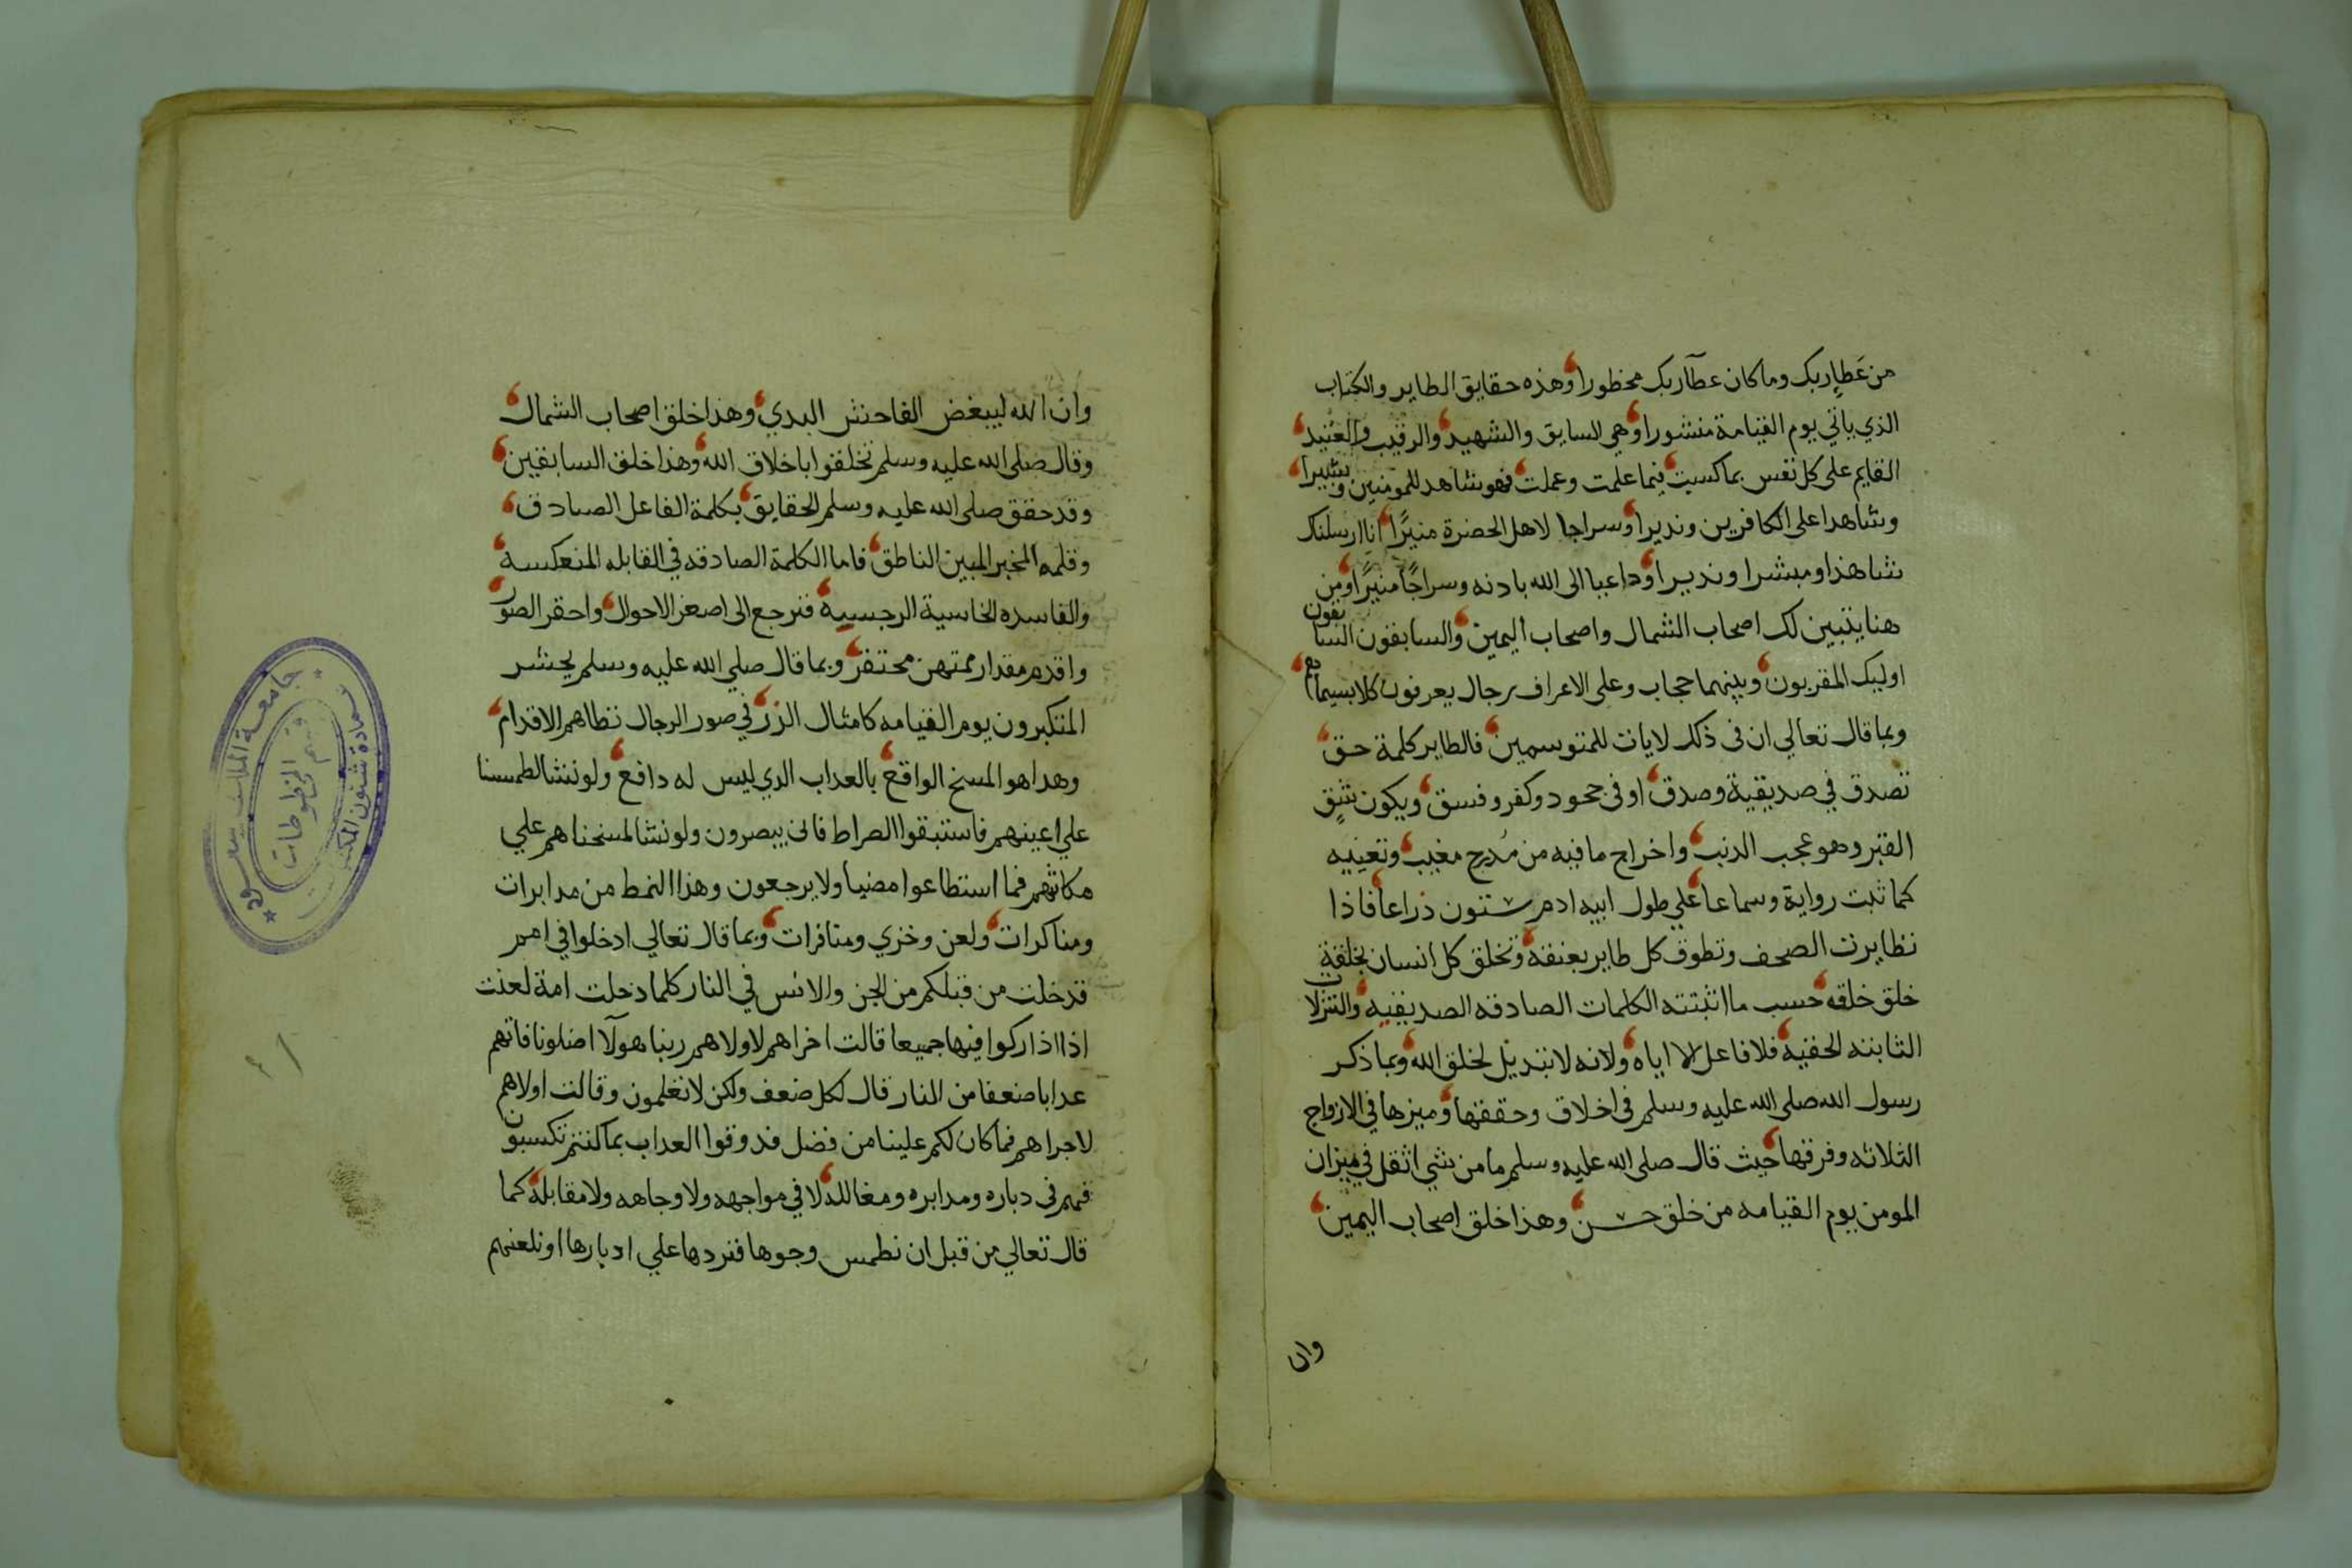 من عَطاِربك وما كان عطآربك محظورا وهذه حقايق الطاير والكتاب
الذي ياتي يوم القيامة منشورا وهي السايق والشهيد والرقيب والعتيد
القايم على كل نفس بما كسبت فيما علمت وعملت فهو شاهد للمومنين وبشيرا
وشاهدا على الكافرين ونذيرا وسراجا لاهل الحضرة منيرًا انا ارسلنك
شاهدا ومبشرا ونذيرا وداعيا الى الله باذنه وسراجًا منيرًا ومن
هنا يتبين لك اصحاب الشمال واصحاب اليمين والسابقون السابقون
اوليك المقربون وبينهما حجاب وعلى الاعراف رجال يعرفون كلا بسيماهم
وبما قال تعالي ان في ذلك لايات للمتوسمين فالطاير كلمة حق
تصدق في صديقية وصدق او في جحود وكفر وفسق ويكون شق
القبر وهو عجب الدنب واخراج ما فيه من مُدرج مغيب وتغيبه
كما ثبت رواية وسماعا علي طول ابيه ادم ستون ذراعا فاذا
تطايرت الصحف وتطوق كل طاير بعنقه وتخلق كل انسان بخلقة
خلق خلقه حسب ما اثبتته الكلمات الصادقه الصديقيه والتنزلات
الثابته الحقيه فلا فاعل الا اياه ولانه لا تبديل لخلق الله وبما ذكر
رسول الله صلى الله عليه وسلم في اخلاق وحققها وميزها في الازواج
الثلاثه وفرقها حيث قال صلى الله عليه وسلم ما من شي اثقل في ميزان
المومن يوم القيامه من خلق حسن وهذا خلق اصحاب اليمين
وان
وان الله ليبغض الفاحش البدي وهذا خلق اصحاب الشمال
وقال صلى الله عليه وسلم تخلقوا باخلاق الله وهذا خلق السابقين
وقد حقق صلى الله عليه وسلم الحقايق بكلمة الفاعل الصادق
وقلمه المخبر المبين الناطق فاما الكلمة الصادقه في القابله المنعكسة
والفاسده الخاسية الرجسيه فترجع الى اصغر الاحوال واحقر الصور
واقدم مقدار ممتهن محتقر وبما قال صلي الله عليه وسلم يحشر
المتكبرون يوم القيامه كامثال الزر في صور الرجال تطاهم الاقدام
وهدا هو المسخ الواقع بالعداب الدي ليس له دافع ولو نشا لطمسنا
علي اعينهم فاستبقوا الصراط فانى يبصرون ولو نشا لمسخناهم علي
مكانتهم فما استطاعوا مضيا ولا يرجعون وهذا النمط من مدابرات
ومناكرات ولعن وخزي ومنافرات وبما قال تعالي ادخلوا في امم
قد خلت من قبلكم من الجن والانس في النار كلما دخلت امة لعنت
اذا اذاركوا فيها جميعا قالت اخراهم لاولاهم ربنا هولآ اضلونا فاتهم
عدابا ضعفا من النار قال لكل ضعف ولكن لا تعلمون وقالت اولاهم
لاجراهم فما كان لكم علينا من فضل فدوقوا العداب بما كنتم تكسبون
فهم في دباره ومدابره ومغالله لا في مواجهه ولا وجاهه ولا مقابلة كما
قال تعالي من قبل ان نطمس وجوها فنردها علي ادبارها او نلعنهم
جامعة الملك سعود
عمادة شئون المكتبات
قسم المخطوطات